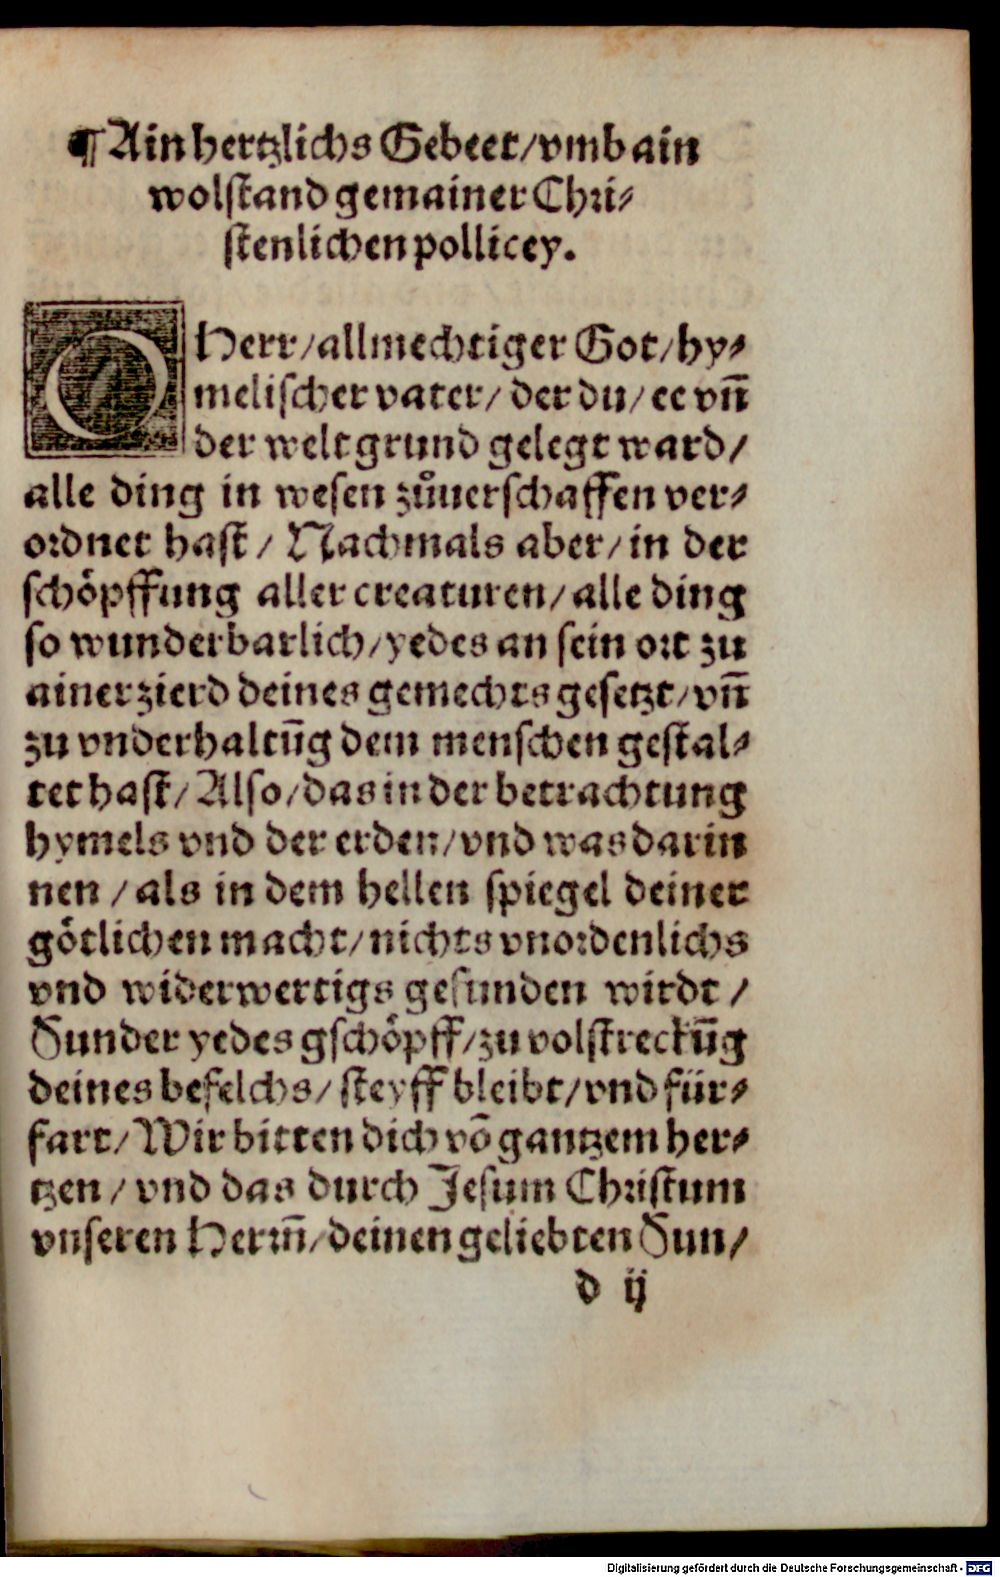 ¶ Ain hertzlichs Gebeet/vmb ain
wolstand gemainer Chri⸗
stenlichen pollicey.
O Herr/allmechtiger Got/hy⸗
melischer vater/ der du/ ee vñ
der welt grund gelegt ward/
alle ding in wesen zůuerschaffen ver⸗
ordnet hast/ Nachmals aber/in der
schöpffung aller creaturen/alle ding
so wunderbarlich/yedes an sein ort zu
ainer zierd deines gemechts gesetzt/vñ
zu vnderhaltūg dem menschen gestal⸗
tet hast/Also/das in der betrachtung
hymels vnd der erden/vnd was darin
nen /als in dem hellen spiegel deiner
götlichen macht/nichts vnordenlichs
vnd widerwertigs gefunden wirdt /
Sunder yedes gschöpff/zu volstreckūg
deines befelchs/ steyff bleibt/vnd für⸗
fart/Wir bitten dich võ gantzem her⸗
tzen/vnd das durch Jesum Christum
vnseren Herrn̄/deinen geliebten Sun/
d ij
Digitalisierung gefördert durch die Deutsche Forschungsgemeinschaft - DFG